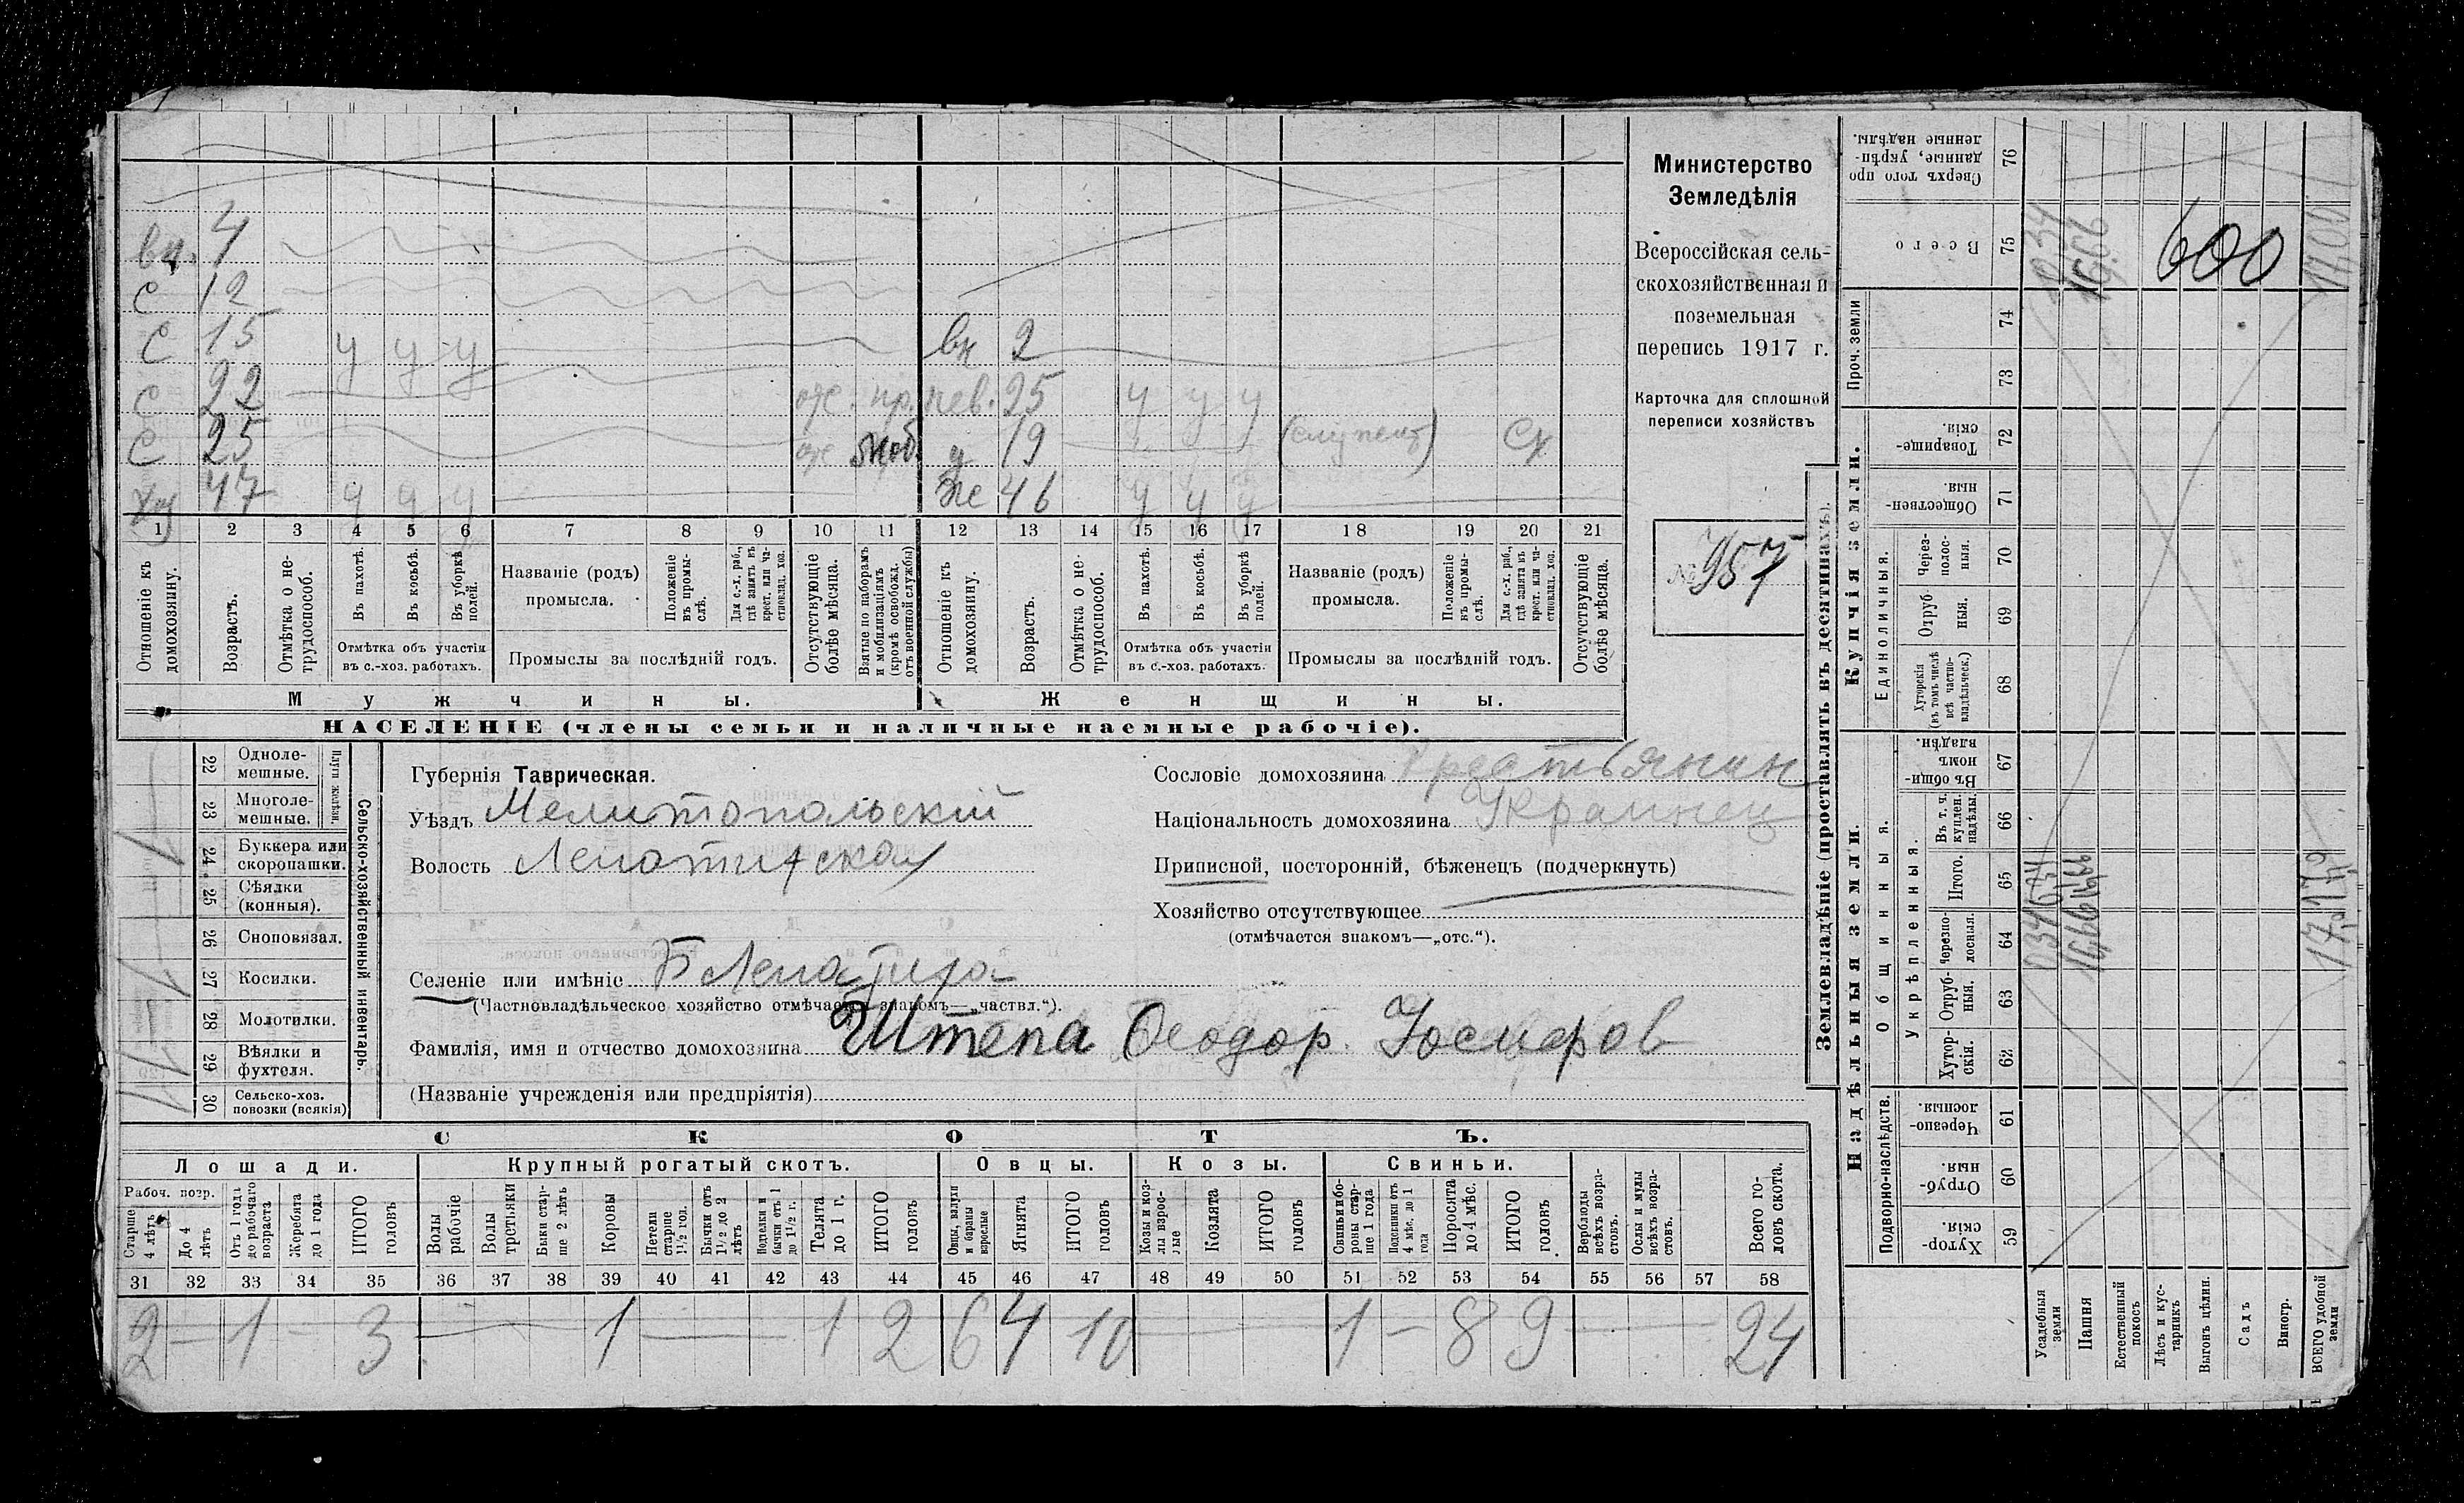 вн. 4
с 12
с 15 у у у вн 2
с 22 от. пр. нев. 25 у у у
с 25 от моб. д 19
хоз 47 у у у же 46 у у у
1 2 3 4 5 6 7 8 9 10 11 12 13 14 15 16 17 18 19 20 21
Отношеніе къ домохозяину.
Возрастъ.
Отмѣтка о не-трудоспособ.
Въ пахотѣ.
Въ косьбѣ.
Въ уборкѣ полей.
Отмѣтка объ участіи
въ с.-хоз. работахъ.
Названіе (родъ)
промысла.
Положеніе въ промы-слѣ.
Для с.-х. раб., гдѣ занятъ въ крест. или ча-стновлад. хоз.
Промыслы за послѣдній годъ.
Отсутствующіе болѣе мѣсяца.
Взятые по наборамъ и мобилизаціямъ (кромѣ освобожд. отъ военной службы)
Отношеніе къ домохозяину.
Возрастъ.
Отмѣтка о не-трудоспособ.
Въ пахотѣ.
Въ косьбѣ.
Въ уборкѣ полей.
Отмѣтка объ участіи
въ с.-хоз. работахъ.
Названіе (родъ)
промысла.
Положеніе въ промы-слѣ.
Для с.-х. раб., гдѣ занята въ крест. или ча-стновлад. хоз.
Промыслы за послѣдній годъ.
Отсутствующіе болѣе мѣсяца.
Мужчины. Женщины.
НАСЕЛЕНІЕ (члены семьи и наличные наемные рабочіе).
Министерство
Земледѣлія
Всероссійская сель-
скохозяйственная и
поземельная
перепись 1917 г.
Карточка для сплошной
переписи хозяйствъ
№ 957
22 Одноле-мешные.
23 Многоле-мешные.
Плуги желѣзн.
24 Буккера или скоропашки.
25 Сѣялки (конныя).
26 Сноповязал.
27 Косилки.
28 Молотилки.
29 Вѣялки и фухтеля.
30 Сельско-хоз. повозки (всякія)
Сельско-хозяйственный инвентарь.
Губернія Таврическая.
Уѣздъ Мелитопольскій
Волость Лепатихская
Селеніе или имѣніе Б Лепатиха
(Частновладѣльческое хозяйство отмѣчается знакомъ—„частвл.“).
Фамилія, имя и отчество домохозяина Штепа Феодор
(Названіе учрежденія или предпріятія)
Сословіе домохозяина Крестьянин
Національность домохозяина Украинец
Приписной, посторонній, бѣженецъ (подчеркнуть)
Хозяйство отсутствующее
(отмѣчается знакомъ—„отс.“).
СКОТЪ.
Лошади. Крупный рогатый скотъ. Овцы. Козы. Свиньи.
Рабоч. возр.
Старше 4 лѣтъ
До 4 лѣтъ
Отъ 1 года до рабочаго возраста
Жеребята до 1 года
ИТОГО головъ
Волы рабочіе
Волы третьяки
Быки стар-ше 2 лѣтъ
Коровы
Нетели старше 1½ год.
Бычки отъ 1½ до 2 лѣтъ
Подтелки и бычки отъ 1 до 1½ г.
Телята до 1 г.
ИТОГО головъ
Овцы, валухи и бараны взрослые
Ягнята
ИТОГО головъ
Козы и коз-лы взрос-лые
Козлята
ИТОГО головъ
Свиньи и бо-ровы стар-ше 1 года
Подсвинки отъ 4 мѣс. до 1 года
Поросята до 4 мѣс.
ИТОГО головъ
Верблюды всѣхъ возра-стовъ.
Ослы и мулы всѣхъ возра-стовъ.
Всего го-ловъ скота.
31 32 33 34 35 36 37 38 39 40 41 42 43 44 45 46 47 48 49 50 51 52 53 54 55 56 57 58
2 — 1 — 3 — 1 — 1 2 6 4 10 — 1 — 8 9 — 24
Землевладѣніе (проставлять въ десятинахъ).
Купчія земли.
Надѣльныя земли.
Сверхъ того про данные, укрѣп-ленные надѣлы. 76
Всего 75 0,34 16,66 600 17,00
Проч. земли 74
73
Товарище-скія. 72
Обществен-ныя. 71
Единоличныя.
Через-полос-ныя. 70
Отруб ныя. 69
Хуторскія (въ томъ числѣ всѣ частно-владѣльческ.) 68
Общинныя.
Въ общин-номъ владѣн. 67
Укрѣпленныя.
Въ т. ч. куплен. надѣлы. 66
Итого. 65
Черезпо-лосныя. 64
Отруб-ныя. 63
Хутор-скія. 62
Подворно-наслѣдств.
Черезпо-лосныя. 61
Отруб-ныя. 60
Хутор-скія. 59
Усадебныя земли
Пашня
Естественный покосъ
Лѣсъ и кус-тарникъ
Выгонъ цѣлин.
Садъ
Виногр.
ВСЕГО удобной земли